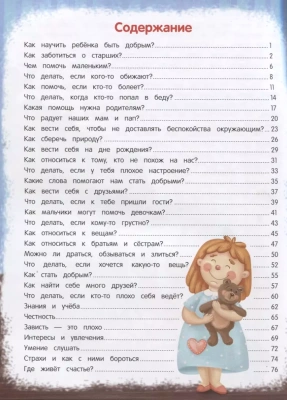 Содержание
Как научить ребёнка быть добрым? 1
Как заботиться о старших? 2
Чем помочь маленьким? 6
Что делать, если кого-то обижают? 8
Как помочь, если кто-то болеет? 11
Что делать, когда кто-то попал в беду? 14
Какая помощь нужна родителям? 17
Что радует наших мам и пап? 20
Как вести себя, чтобы не доставлять беспокойства окружающим? 23
Как сберечь природу? 25
Как вести себя на дне рождения? 29
Как относиться к тому, кто не похож на нас? 31
Что делать, если у тебя плохое настроение? 33
Какие слова помогают нам стать добрыми? 35
Как вести себя с друзьями? 37
Что делать, если к тебе пришли гости? 39
Как мальчики могут помочь девочкам? 41
Что делать, если кому-то грустно? 43
Как относиться к вещам? 45
Как относиться к братьям и сёстрам? 47
Можно ли драться, обзываться и злиться? 50
Что делать, если хочется какую-то вещь? 52
Как стать добрым? 55
Как найти себе много друзей? 57
Что делать, если кто-то плохо себя ведёт? 60
Знания и учёба 62
Честность 65
Зависть — это плохо 67
Интересы и увлечения 69
Умение слушать 72
Страхи и как с ними бороться 74
Где живёт счастье? 76